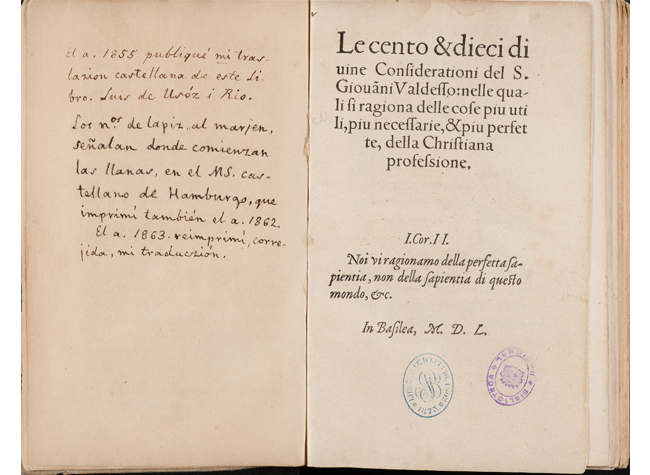 El a. 1855 publiqué mi tras-
lazion castellana de este li-
bro. Luis de Usóz i Rio.
Los nos. de lapiz, al marjen,
señalan donde comienzan
las llanas, en el MS. cas-
tellano de Hamburgo, que
imprimí también el a. 1862.
El a. 1863. reimprimí, corre-
jida, mi traduczión.
Le cento & dieci di
uine Considerationi del S.
Giouãni Valdesso: nelle qua-
li si ragiona delle cose piu uti
li, piu necessarie, & piu perfet
te, della Christiana
professione.
I. Cor. II.
Noi vi ragionamo della perfetta sa-
pientia, non della sapientia di questo
mondo, &c.
In Basilea, M. D. L.
BIBLIOTECA